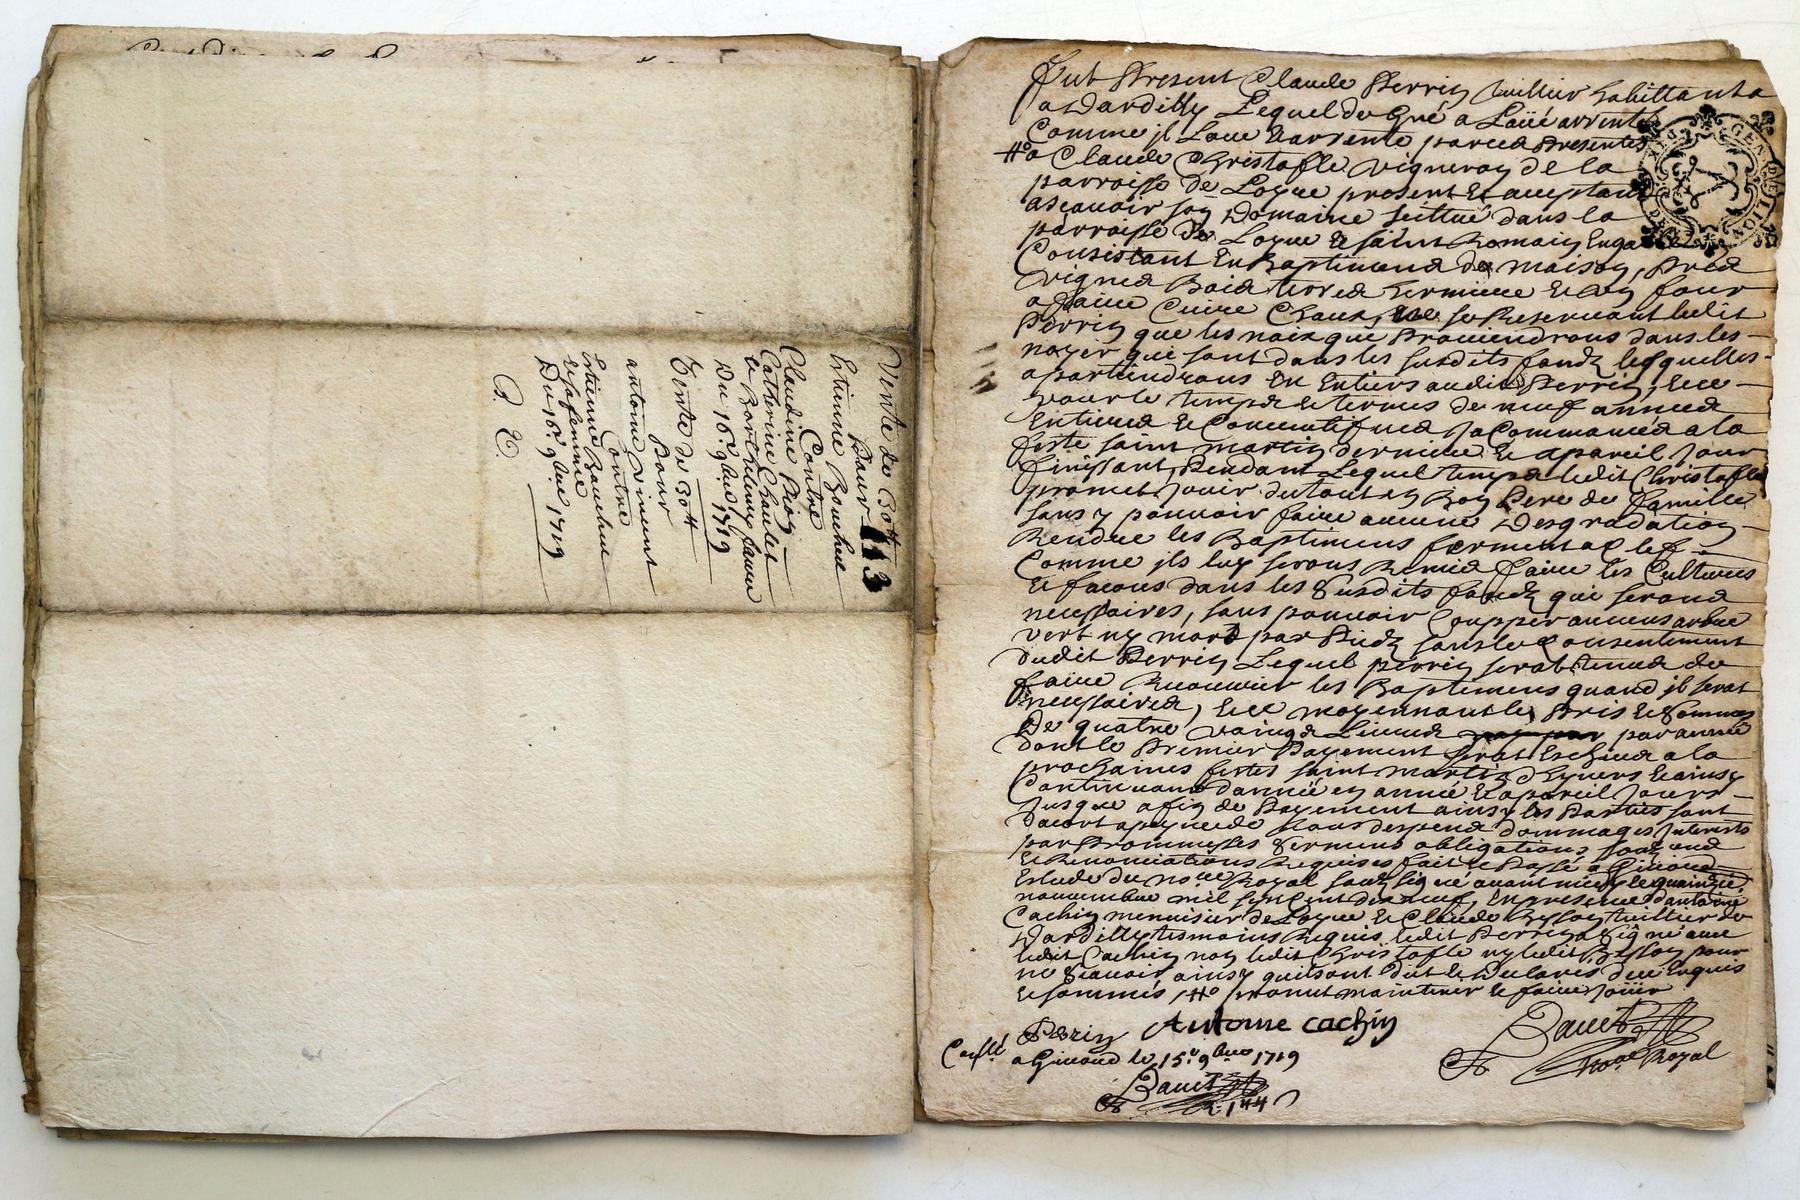 Vente de 30ᵗᵗ
Pour
Estienne Boucheu
Contre
Claudine Pion
Catherine Chaulet
et Barthelemy
Du 16e 9bre 1719
Vente de 30ᵗᵗ
pour
antoine Vincent
Contre
Estienne Boucheu
et sa femme
Du 16e 9bre 1719
113
Fut Present Claude Perrin tuillier habittant
a Dardilly Lequel de Gré a Laüé arrenté
Comme jl Loue et arrente par ces presentes
a Claude Christofle vigneron de la
parroisse de Loyue present et aceptant
ascauoir son Domaine scittué dans la
parroisse de Loyue et saint Romain
Consistant En Baptimend de maison, pred
vigned Boid terred hermiere et un four
a faire Cuire Chaux, se Reservant ledit
Perrin que les noix que Prouiendrons dans les
noyer qui sont dans les susdits fondz lesquelles
apartiendrons En Entiers audit Perrin, et ce
pour le tempd et termes de neuf annéed
Entiered et Consecutiued Ja Commancéd a la
feste saint martin derniere et apareil jour
finissant, Pendant Lequel tempd ledit Christofle
promet jouir du tout en Bon Pere de famille
sans y pouuoir faire aucune Desgradation
Rendre les Baptimens fermental clef
Comme jls luy serons Remid faire les Cultures
et facons dans les susdits fondz qui serond
necessaires, sans pouuoir Coupper aucuns arbre
vert ny mort par Piedz sans le Consentement
dudit Perrin Lequel perrin serat tenud de
faire Recouurir les Baptimens quand jl serat
necessaired, et ce moyennant le Pris et Somme
De quatre vaingd Liured par année
dont le Premier Payement serat Escheud a la
prochaines festes saint martin d'hyuers et ainsy
Continuant d'année en année et apareil jours
jusque a fin de Payement ainsy les Parties sont
dacort a peyne de tous despend dommages jnterests
par Prommesses serment obligations
et Renonciations Requises fait et Passé a
Estude du nore Royal soubsigné auant midy le quinzie
nouembre mil sept Cent dix neuf, En presence d'antoine
Cachin menuisier de Loyue et Claude Besson tuillier de
Dardilly tesmoins Requis ledit Perrin a Signé auec
ledit Cachin non ledit Christofle ny ledit Besson pour
ne Scauoir ainsy quils ont dit et Declarés de ce Enquis
et sommés, promet maintenir et faire joüir
Perin Antoine cachin
nore Royal
Conllé a Giuaud le 15e 9bre 1719